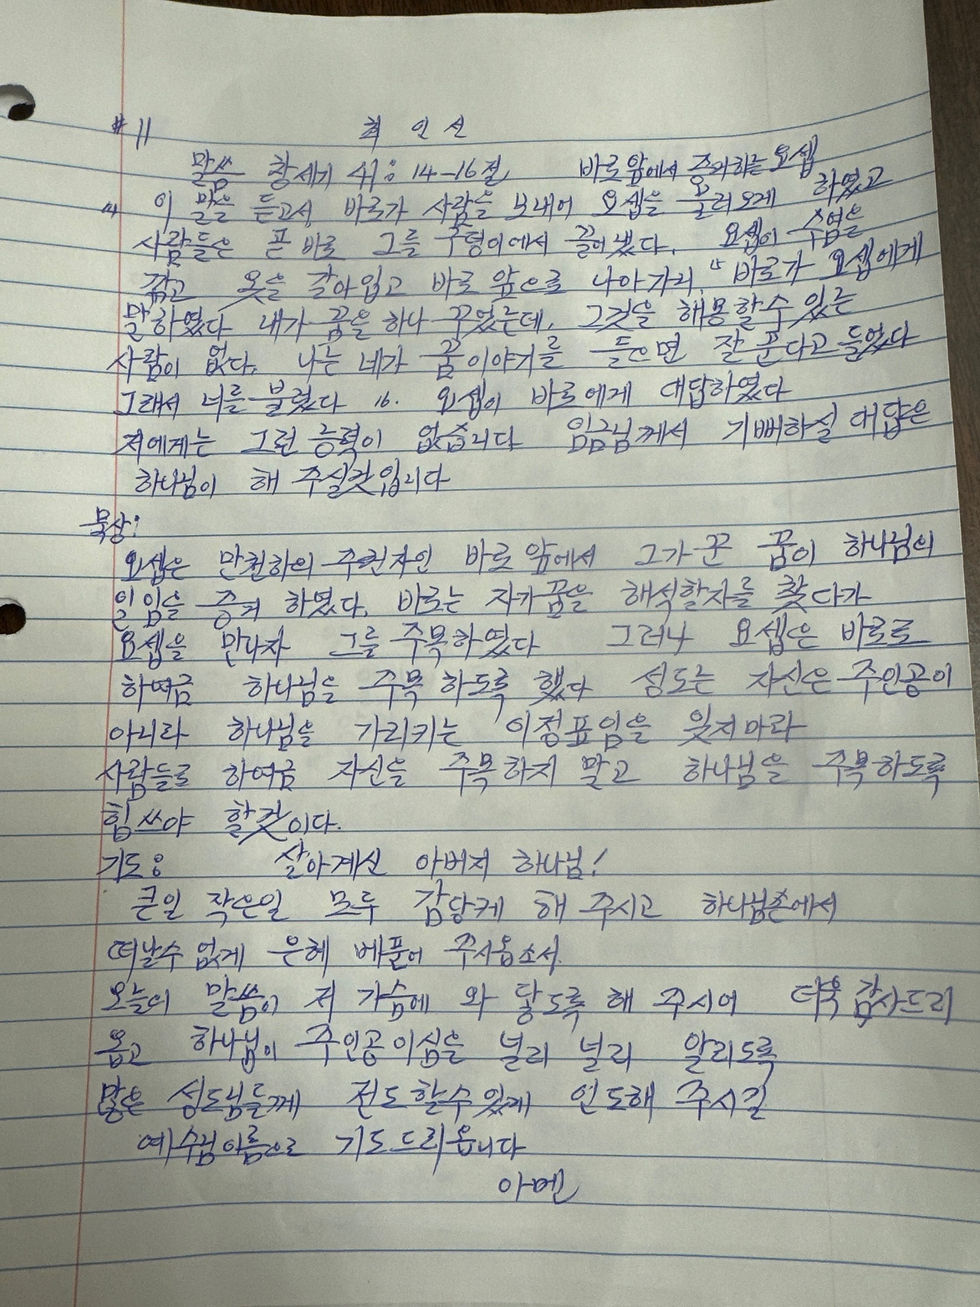 #11 최인선
말씀 창세기 41:14-16절 바로앞에서 주목하는 요셉
14 이 말을 듣고서, 바로가 사람을 보내어 요셉을 불러오게 하였고
사람들은 곧 바로 그를 구덩이에서 끌어냈다. 요셉이 수염을
깎고 옷을 갈아입고 바로 앞으로 나아가니, 15 바로가 요셉에게
말하였다 내가 꿈을 하나 꾸었는데, 그것을 해몽할수 있는
사람이 없다. 나는 네가 꿈이야기를 들으면 잘 푼다고 들었다
그래서 너를 불렀다 16. 요셉이 바로에게 대답하였다
저에게는 그런 능력이 없습니다 임금님께서 기뻐하실 대답은
하나님이 해 주실것입니다
묵상:
요셉은 만천하의 주권자인 바로 앞에서 그가 꾼 꿈이 하나님의
일임을 증거 하였다. 바로는 자기꿈을 해석할자를 찾다가
요셉을 만나자 그를 주목하였다 그러나 요셉은 바로로
하여금 하나님을 주목 하도록 했다 성도는 자신은 주인공이
아니라 하나님을 가리키는 이정표임을 잊지마라
사람들로 하여금 자신을 주목하지 말고 하나님을 주목하도록
힘쓰야 할것이다.
기도: 살아계신 아버지 하나님!
큰일 작은일 모두 감당케 해 주시고 하나님손에서
떠날수 없게 은혜 베풀어 주시옵소서.
오늘의 말씀이 저 가슴에 와 닿도록 해 주시어 더욱 감사드리
옵고 하나님이 주인공이심을 널리 널리 알리도록
많은 성도님들께 전도할수있게 인도해 주시길
예수님이름으로 기도드리옵니다
아멘